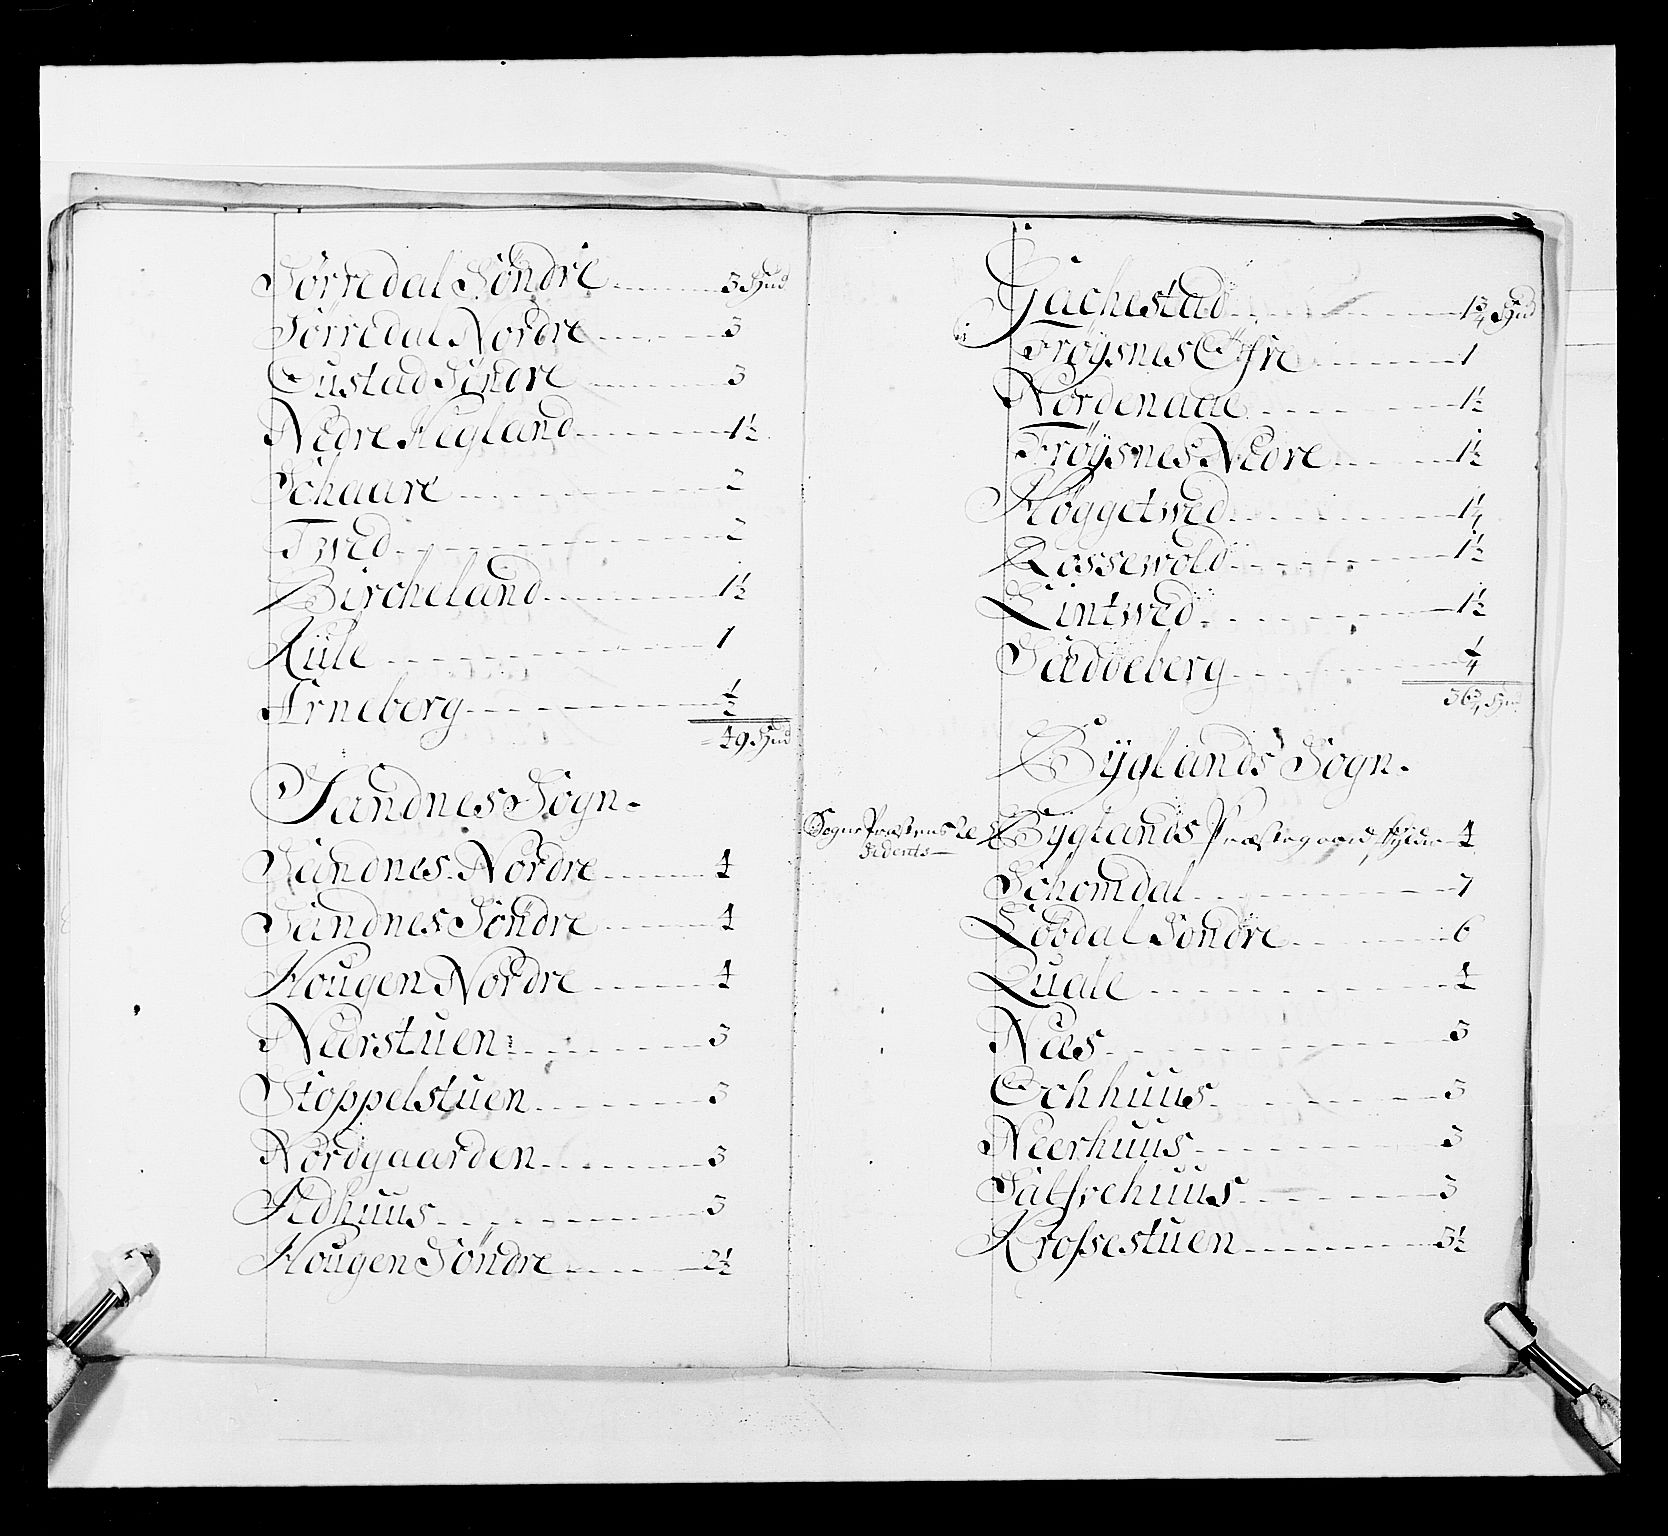 Jørredal Søndre 3 Hud
Jørredal Nordre 3
Custad Søndre 3
Nedre Hegland 1½
Schaare 2
Twed 2
Bircheland 1½
Rüle 1
Arneberg ½
49 Hud
Sandnes Sogn.
Sandnes Nordre 4
Sandnes Søndre 4
Hougen Nordre 4
Neerstuen 3
Stoppelstuen 3
Nordgaarden 3
Adhuus 3
Hougen Søndre 2½
Jachestad 1¾ Hud
Frøysnes Øfre 1
Nordenaae 1½
Frøysnes Nedre 1½
Høggetwed 1¼
Rossewold 1½
Lintwed 1½
Sæddeberg ¼
36¾ Hud
Byglands Sogn.
Sogne Præstens Re
sidents
Byglands Præstegaard skylder 4
Schomdal 7
Løbdal Søndre 6
Quale 4
Næs 3
Ochhuus 3
Neerhuus 3
Sætfrehuus 3
Krossestuen 3½